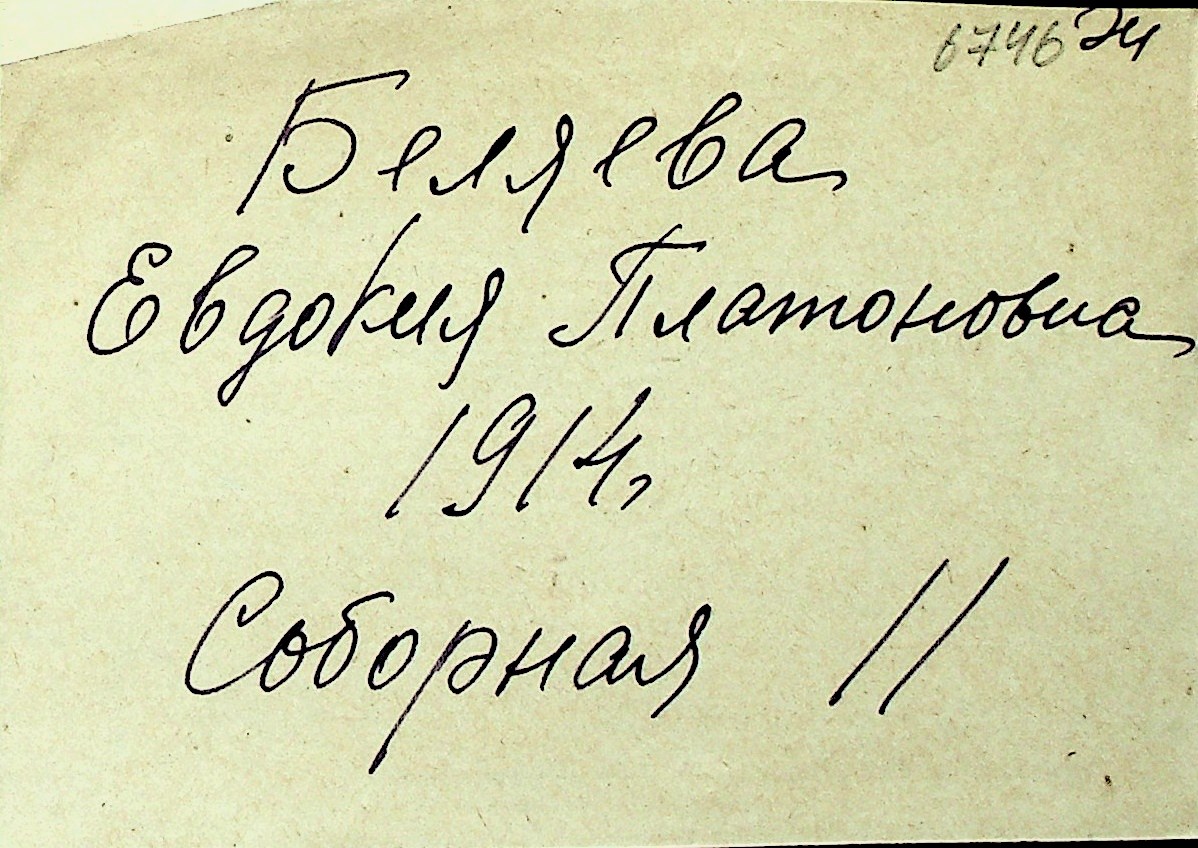 6746 Эч
Беляева
Евдокия Платоновна
1914,
Соборная 11